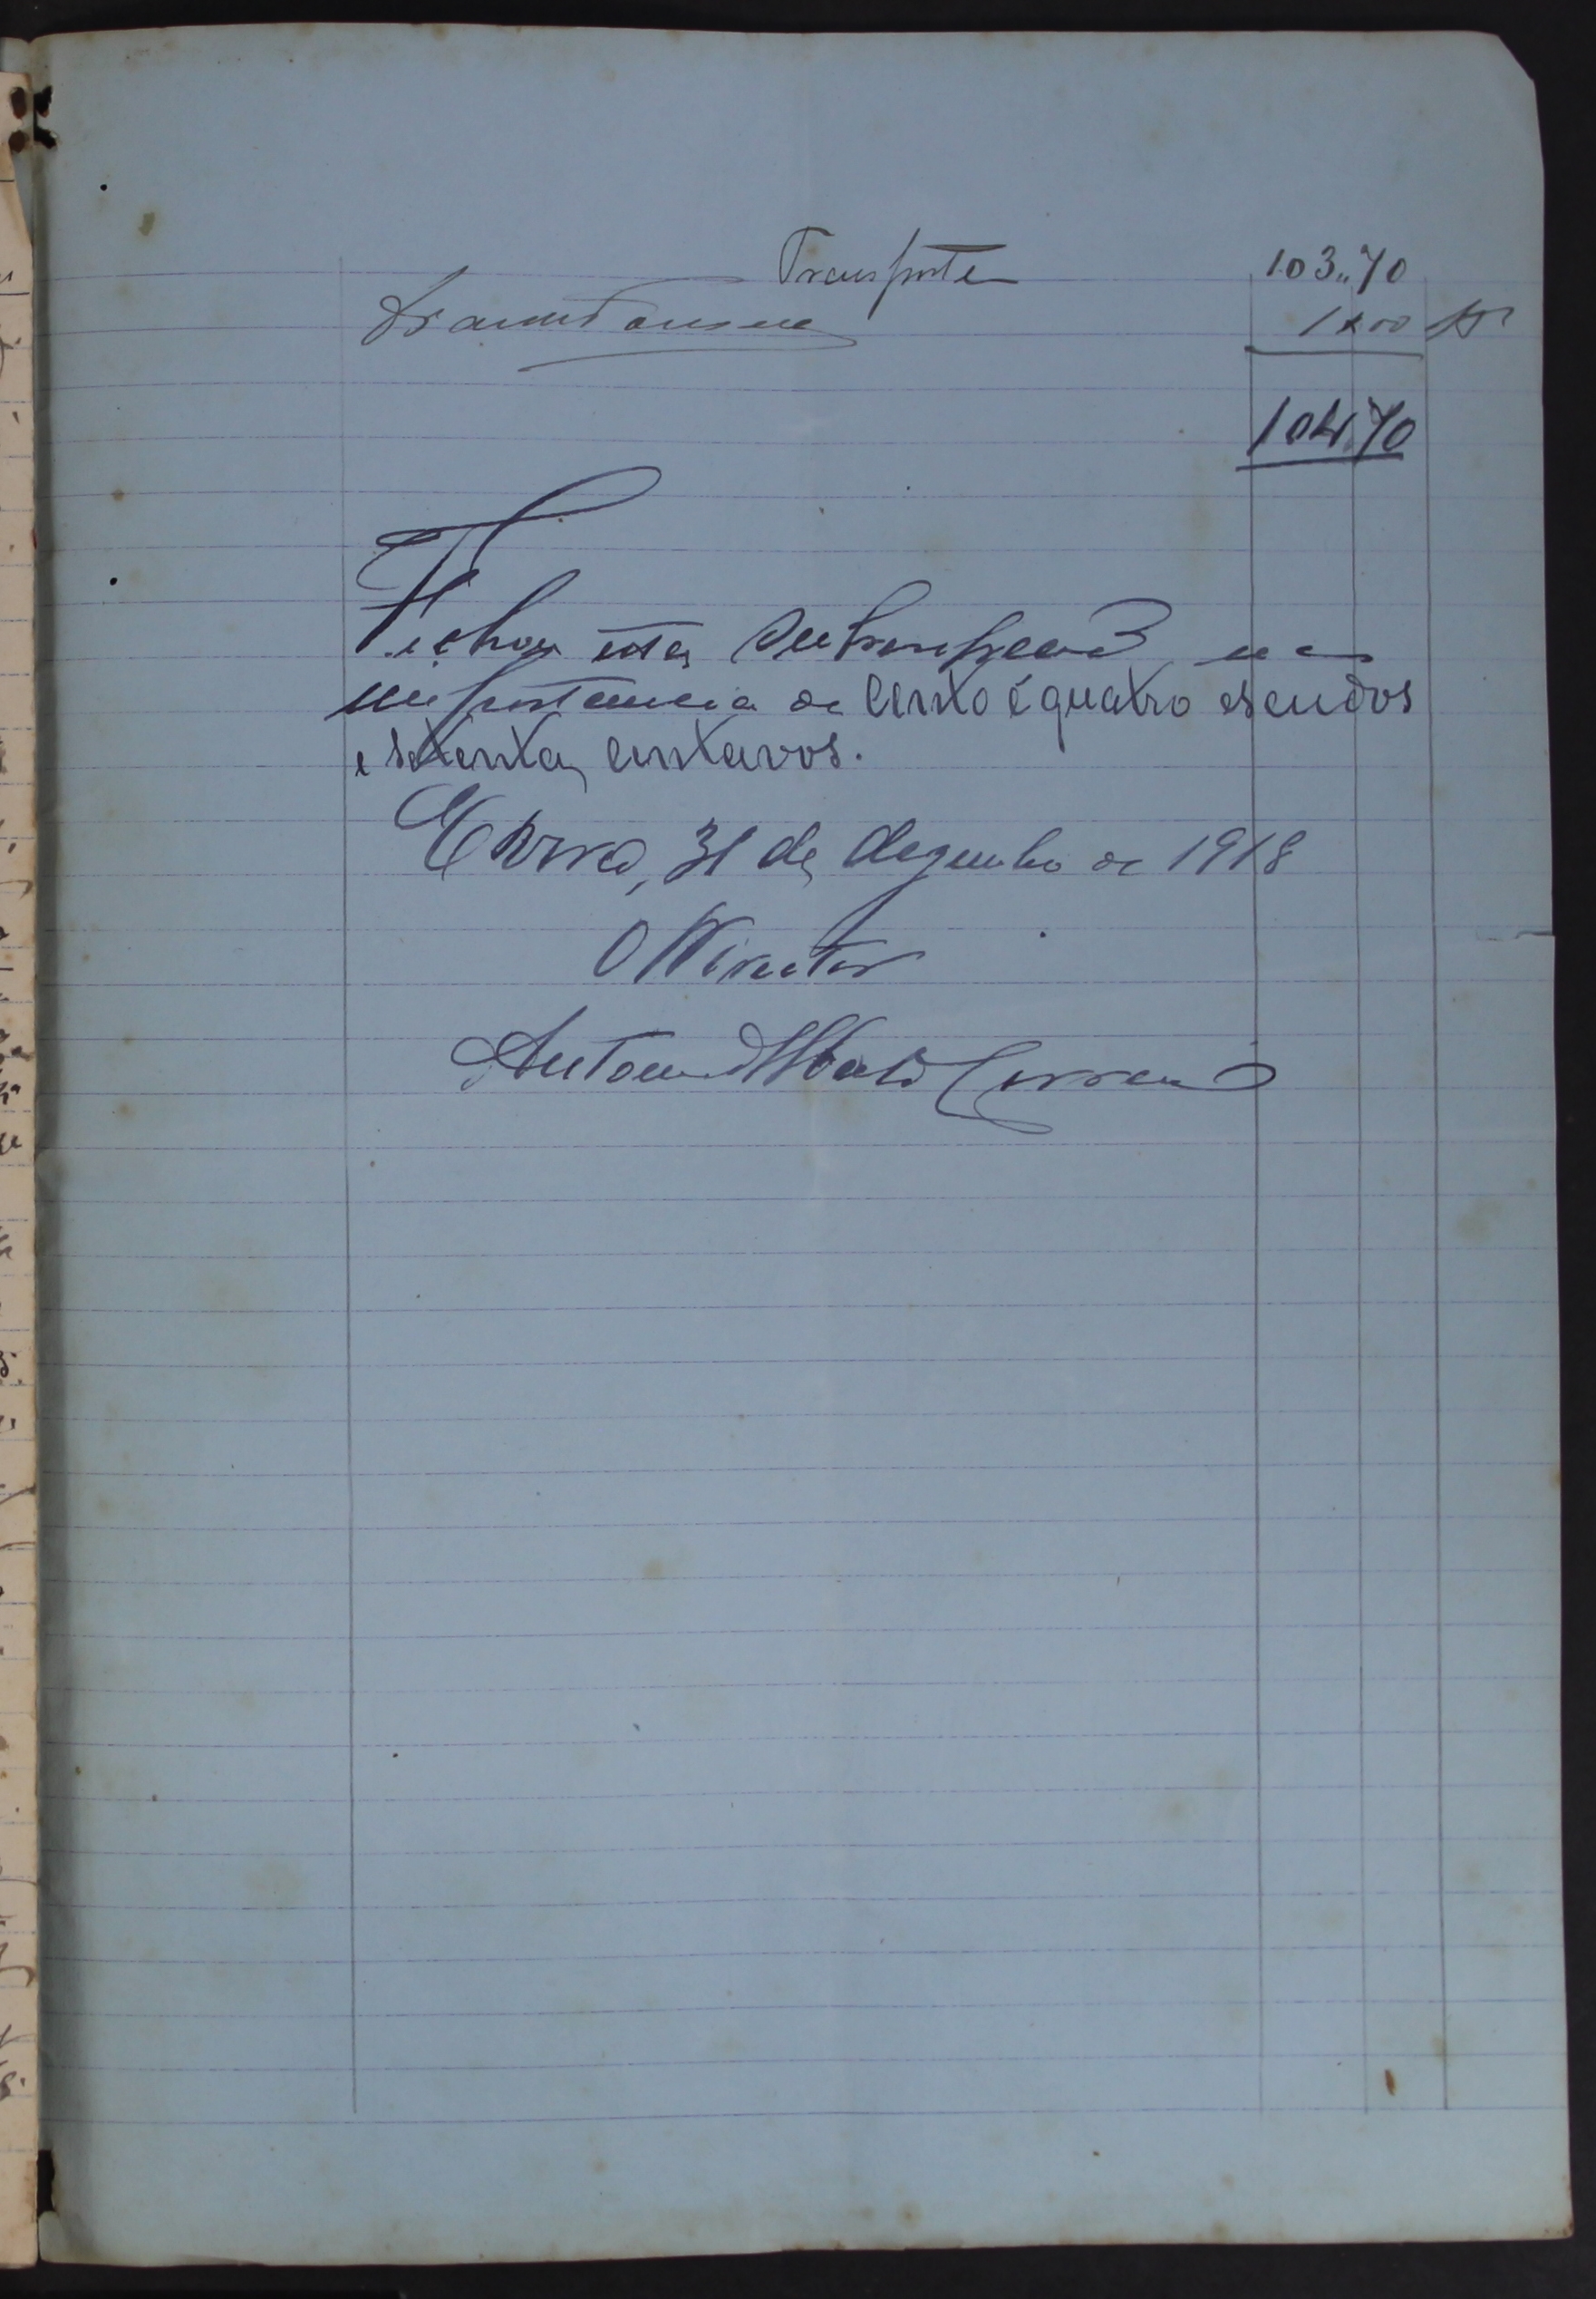 Transporte 103,,70
1$00
104,70
Fechou esta subscripção na
importancia de cento e quatro escudos
e setenta centavos.
Evora, 31 de dezembro de 1918
O Director
Antonio Correia